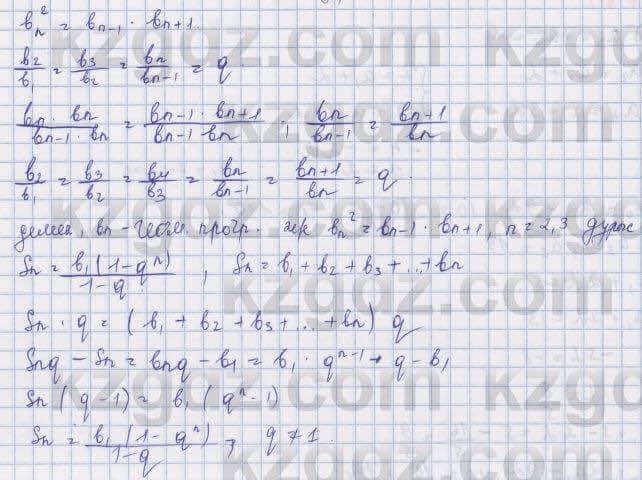 bₙ² = bₙ₋₁ · bₙ₊₁
b₂/b₁ = b₃/b₂ = bₙ/bₙ₋₁ = q
bₙ · bₙ/bₙ₋₁ · bₙ = bₙ₋₁ · bₙ₊₁/bₙ₋₁ bₙ ; bₙ/bₙ₋₁ = bₙ₊₁/bₙ
b₂/b₁ = b₃/b₂ = b₄/b₃ = bₙ/bₙ₋₁ = bₙ₊₁/bₙ = q.
демек, bₙ - геом. прогр. bₙ² = bₙ₋₁ · bₙ₊₁, n = 2,3 дұрыс
Sₙ = b₁(1-qⁿ)/1-q , Sₙ = b₁ + b₂ + b₃ + ... + bₙ
Sₙ · q = (b₁ + b₂ + b₃ + ... + bₙ) q
Sₙq - Sₙ = bₙq - b₁ = b₁ · qⁿ⁻¹ · q - b₁
Sₙ(q-1) = b₁(qⁿ-1)
Sₙ = b₁(1-qⁿ)/1-q, q ≠ 1.
kzgdz.com